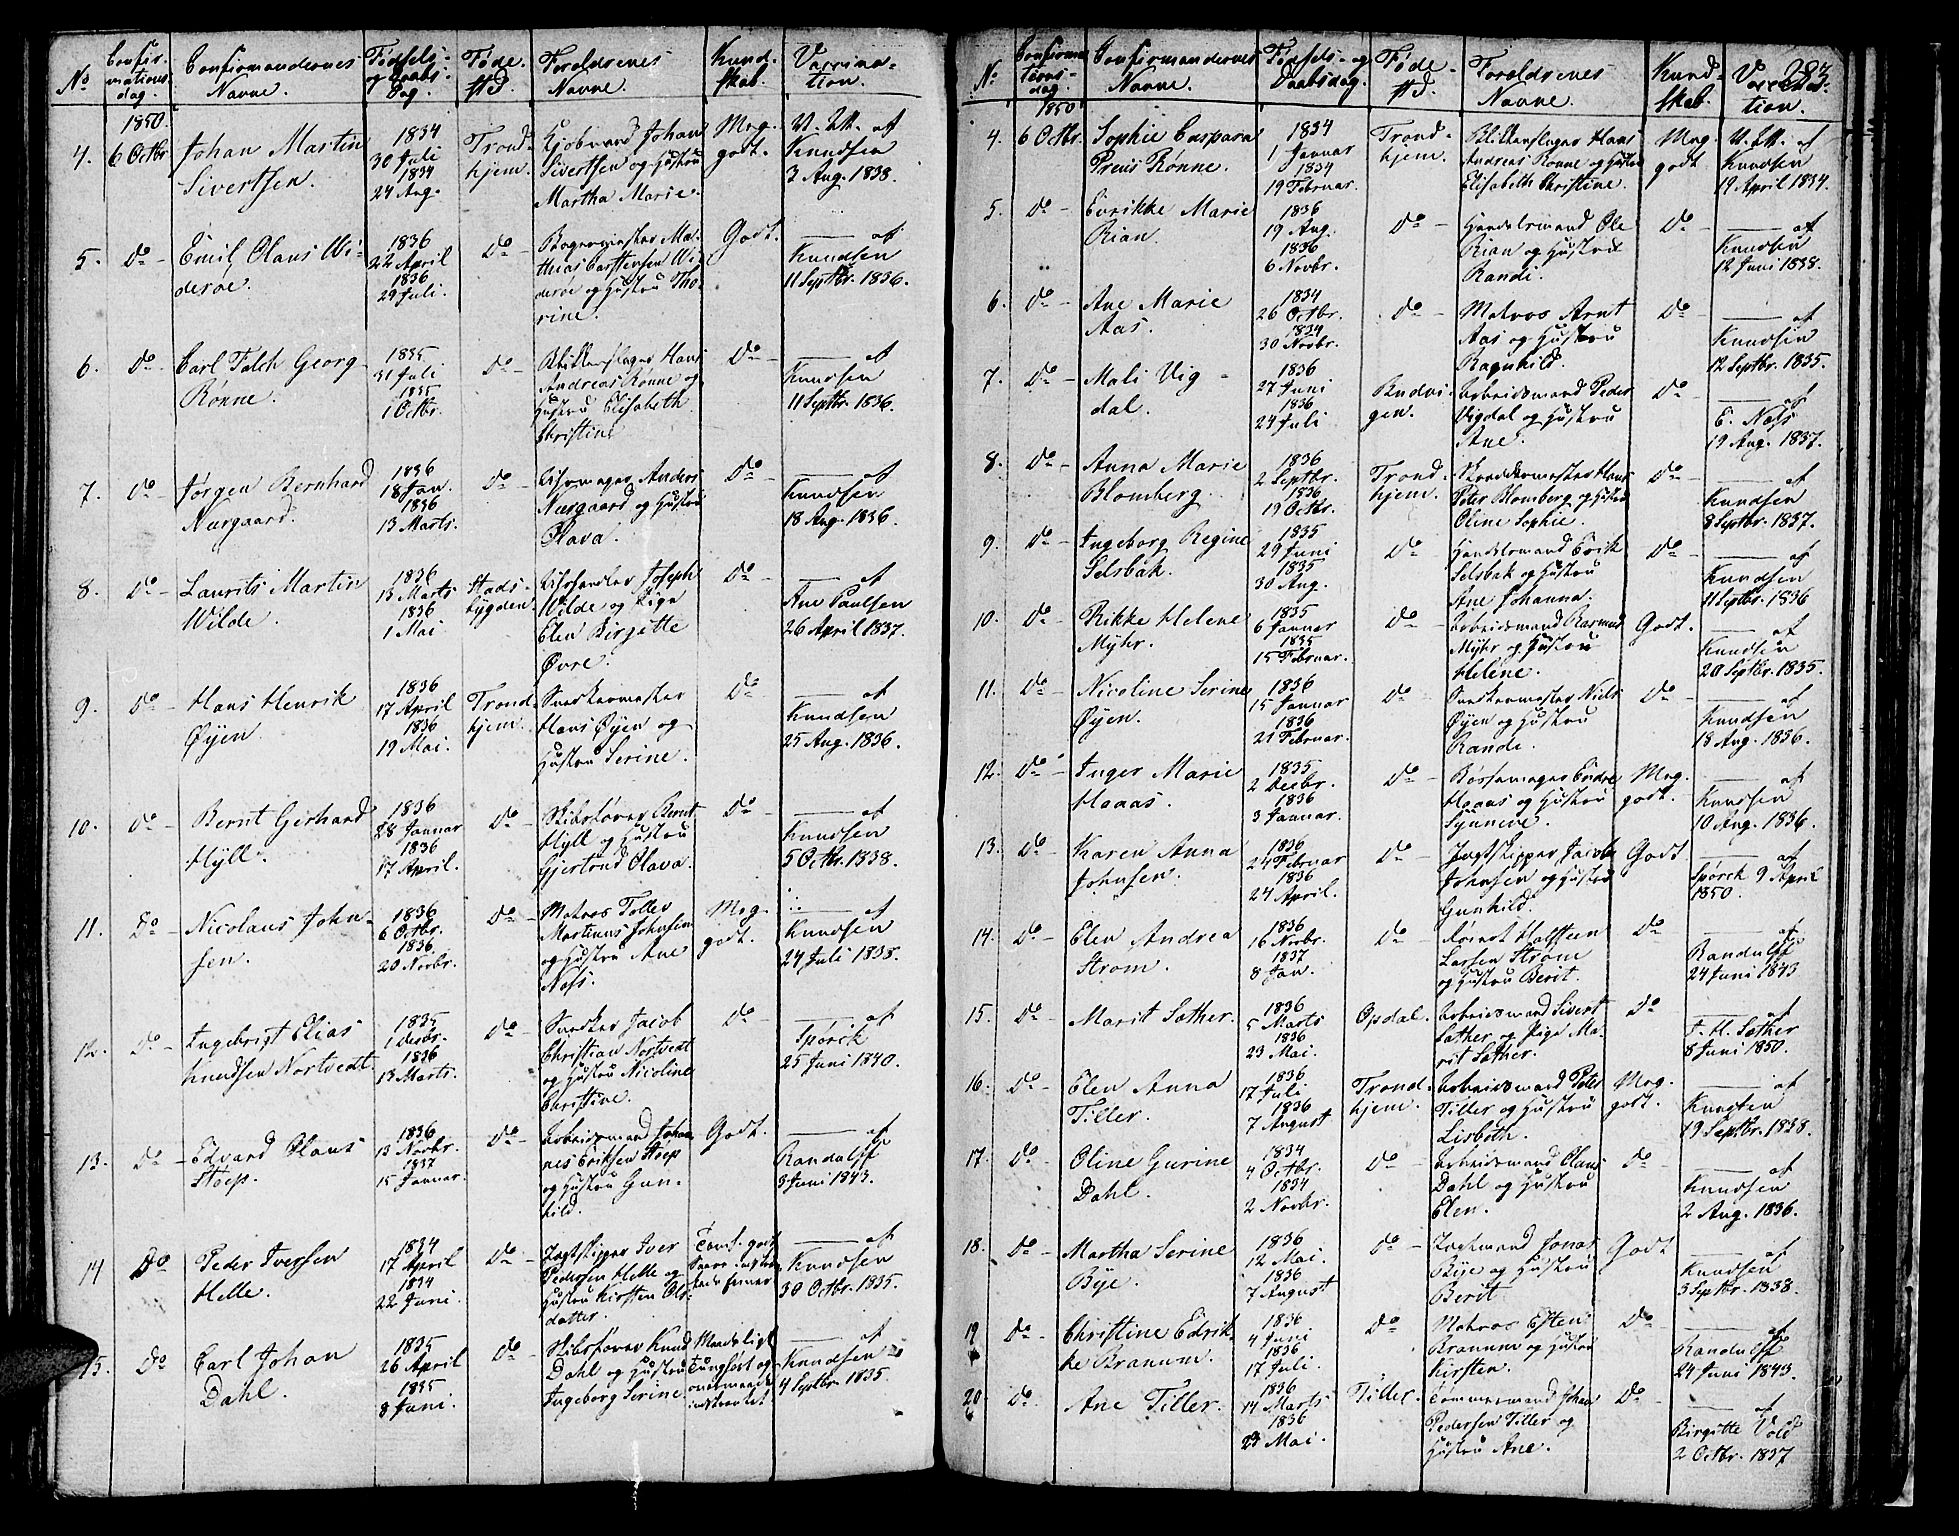 No
Confir-
mations
dag.
Confirmandernes
Navne.
Fødsels-
og Daabs-
dag.
Føde-
sted.
Forældrenes
Navne.
Kund-
skab.
Vaccina-
tion.
1850.
4. 6 Octbr
Johan Martin
Sivertsen.
1834
30 Juli
1834
24 Aug.
Trond-
hjem.
Kjøbmand Johan
Sivertsen og Hustru
Martha Marie.
Meg.
godt.
V. Att. af
Knudsen
3 Aug. 1838.
5. do
Emil Olaus Wi-
derøe.
1836
22 April
1836
29 Juli.
do
Mathias Carstensen Wi-
derøe og Hustru Tho-
rine.
Godt.
— af
Knudsen
11 Septbr. 1836.
6. do
Carl Falch Georg
Rønne.
1835
31 Juli
1835
1 Octbr.
do
Blikkenslager Hans
Andreas Rønne og
Hustru Elisabeth
Christine
do
— af
Knudsen
11 Septbr. 1836.
7. do
Jørgen Bernhard
Nærgaard.
1836
18 Jan.
1836
13 Marts.
do
Anders
Nærgaard og Hustru
Olava.
do
— af
Knudsen
18 Aug. 1836.
8. do
Laurits Martin
Wilde.
1836
13 Marts
1836
1 Mai
Stads-
bygden.
Joseph
Wilde og Pige
Elen Birgitte
Øvre.
do
— af
Ane Paulsen
26 April 1837.
9. do
Hans Henrik
Øyen.
1836
17 April
1836
19 Mai.
Trond-
hjem.
Snedkermester
Hans Øyen og
Hustru Serine.
do
— af
Knudsen
25 Aug. 1836.
10. do
Bernt Gerhard
Hyll.
1836
28 Januar
1836
17 April.
do
Skibsfører Bernt
Hyll og Hustru
Gjertrud Olava.
do
— af
Knudsen
5 Octbr. 1838.
11. Do
Nicolaus John-
sen.
1836
6 Octbr.
1836
20 Novbr.
do
Matros Toller
Martinus Johnsen
og Hustru Ane
Næss.
Meg.
godt.
— af
Knudsen
24 Juli 1838.
12. do
Ingebrigt Elias
Knudsen Nortvedt
1835
1 Decbr.
1836
13 Marts.
do
Snedker Jacob
Christian Nortvedt
og Hustru Nicoline
Christine.
do
— af
Spørck
25 Juni 1840.
13. do
Edvard Olaus
Støep.
1836
13 Novbr.
1837
15 Januar.
do
Arbeidsmand Johan-
nes Eriksen Støep
og Hustru Gun-
hild.
Godt.
— af
Randulff
3 Juni 1843.
14 Do
Peder Iversen
Helle.
1834
17 April
1834
22 Juni.
do
Jagtskipper Iver
Pedersen Helle og
Hustru Kirsten Ols-
datter.
— af
Knudsen
30 Octbr. 1835.
15. Do
Carl Johan
Dahl.
1835
26 April
1835
8 Juni.
do
Skibsfører Knud
Dahl og Hustru
Ingeborg Serine
Maadeligt
Tungført og
— af
Knudsen
4 Septbr. 1835.
283.
No
Confirma-
tions-
dag.
Confirmandernes
Navne.
Fødsels- og
Daabsdag.
Føde-
sted.
Forældrenes
Navne.
Kund-
skab.
Vaccina-
tion.
1850
4. 6 Octbr.
Sophie Caspara
Preus Rønne.
1834
1 Januar
1834
19 Februar.
Trond-
hjem.
Blikkenslager Hans
Andreas Rønne og Hustru
Elisabeth Christine.
Meg.
godt
V. Att. af
Knudsen
19 April 1834.
5. do
Evrikke Marie
Rian.
1836
19 Aug.
1836
6 Novbr.
do
Handelsmand Ole
Rian og Hustru
Randi.
do
— af
Knudsen
12 Juni 1838.
6. do
Ane Marie
Aas.
1834
26 Octbr.
1834
30 Novbr.
do
Matros Arnt
Aas og Hustru
Ragnhild.
do
— af
Knudsen
12 Septbr. 1835.
7. do
Mali Vig-
dal.
1836
27 Juni
1836
24 Juli
Budvi-
gen.
Arbeidsmand Peder
Vigdal og Hustru
Ane.
do
— af
E. Næss
19 Aug. 1837.
8. do
Anna Marie
Blomberg.
1836
2 Septbr.
1836
19 Octbr.
Trond-
hjem.
Skræddermester Hans
Peter Blomberg og Hustru
Oline Sophie.
do
— af
Knudsen
8 Septbr. 1837.
9. do
Ingeborg Regine
Selsbak.
1835
29 Juni
1835
30 Aug.
do
Handelsmand Erik
Selsbak og Hustru
Ane Johanna.
do
— af
Knudsen
11 Septbr. 1836
10. do
Rikke Helene
Myhr.
1835
6 Januar
1835
15 Februar.
do
Arbeidsmand Rasmus
Myhr og Hustru
Helene.
Godt.
— af
Knudsen
20 Septbr. 1835.
11. do
Nicoline Serine
Øyen.
1836
15 Januar
1836
21 Februar.
do
Snedkermester Niels
Øyen og Hustru
Randi.
do
— af
Knudsen
18 Aug. 1836.
12. do
Inger Marie
Haaas.
1835
2 Decbr.
1836
3 Januar.
do
Bøssemager Endre
Haaas og Hustru
Synneve.
Meg.
godt.
— af
Knudsen
10 Aug. 1836.
13. do
Karen Anna
Johnsen.
1836
24 Februar
1836
24 April.
do
Jagtskipper Jacob
Johnsen og Hustru
Gunhild.
Godt
— af
Spørck 9 April
1850.
14. do
Elen Andrea
Strøm.
1836
16 Novbr.
1837
8 Jan.
do
Halsteen
Larsen Strøm
og Hustru Berit.
do
— af
Randulff
24 Juni 1843
15. do
Marit Sæther.
1836
5 Marts
1836
23 Mai.
Opdal.
Arbeidsmand Sivert
Sæther og Pige Ma-
rit Sæther.
do
— af
F. H. Sæther
8 Juni 1850.
16. do
Elen Anna
Tiller.
1836
17 Juli
1836
7 August
Trond-
hjem.
Arbeidsmand Peter
Tiller og Hustru
Lisbeth.
Meg.
godt.
— af
Knudsen
19 Septbr. 1838.
17. do
Oline Gurine
Dahl.
1834
4 Octbr.
1834
2 Novbr.
do
Arbeidsmand Olaus
Dahl og Hustru
Elen.
do
— af
Knudsen
2 Aug. 1836.
18. do
Martha Serine
Bye.
1836
12 Mai
1836
7 August
do
Jonas
Bye og Hustru
Berit
Godt
— af
Knudsen
3 Septbr. 1838.
19 do
Christine Edrik-
ke Branum.
1836
4 Juni
1836
17 Juli.
do
Matros Esten
Branum og Hustru
Kirsten.
do
— af
Randulff
24 Juni 1843.
20 do
Ane Tiller.
1836
14 Marts
1836
23 Mai.
Tiller.
Tømmermand Johan
Pedersen Tiller og
Hustru Ane.
do
— af
Birgitte Vold
2 Octbr. 1837